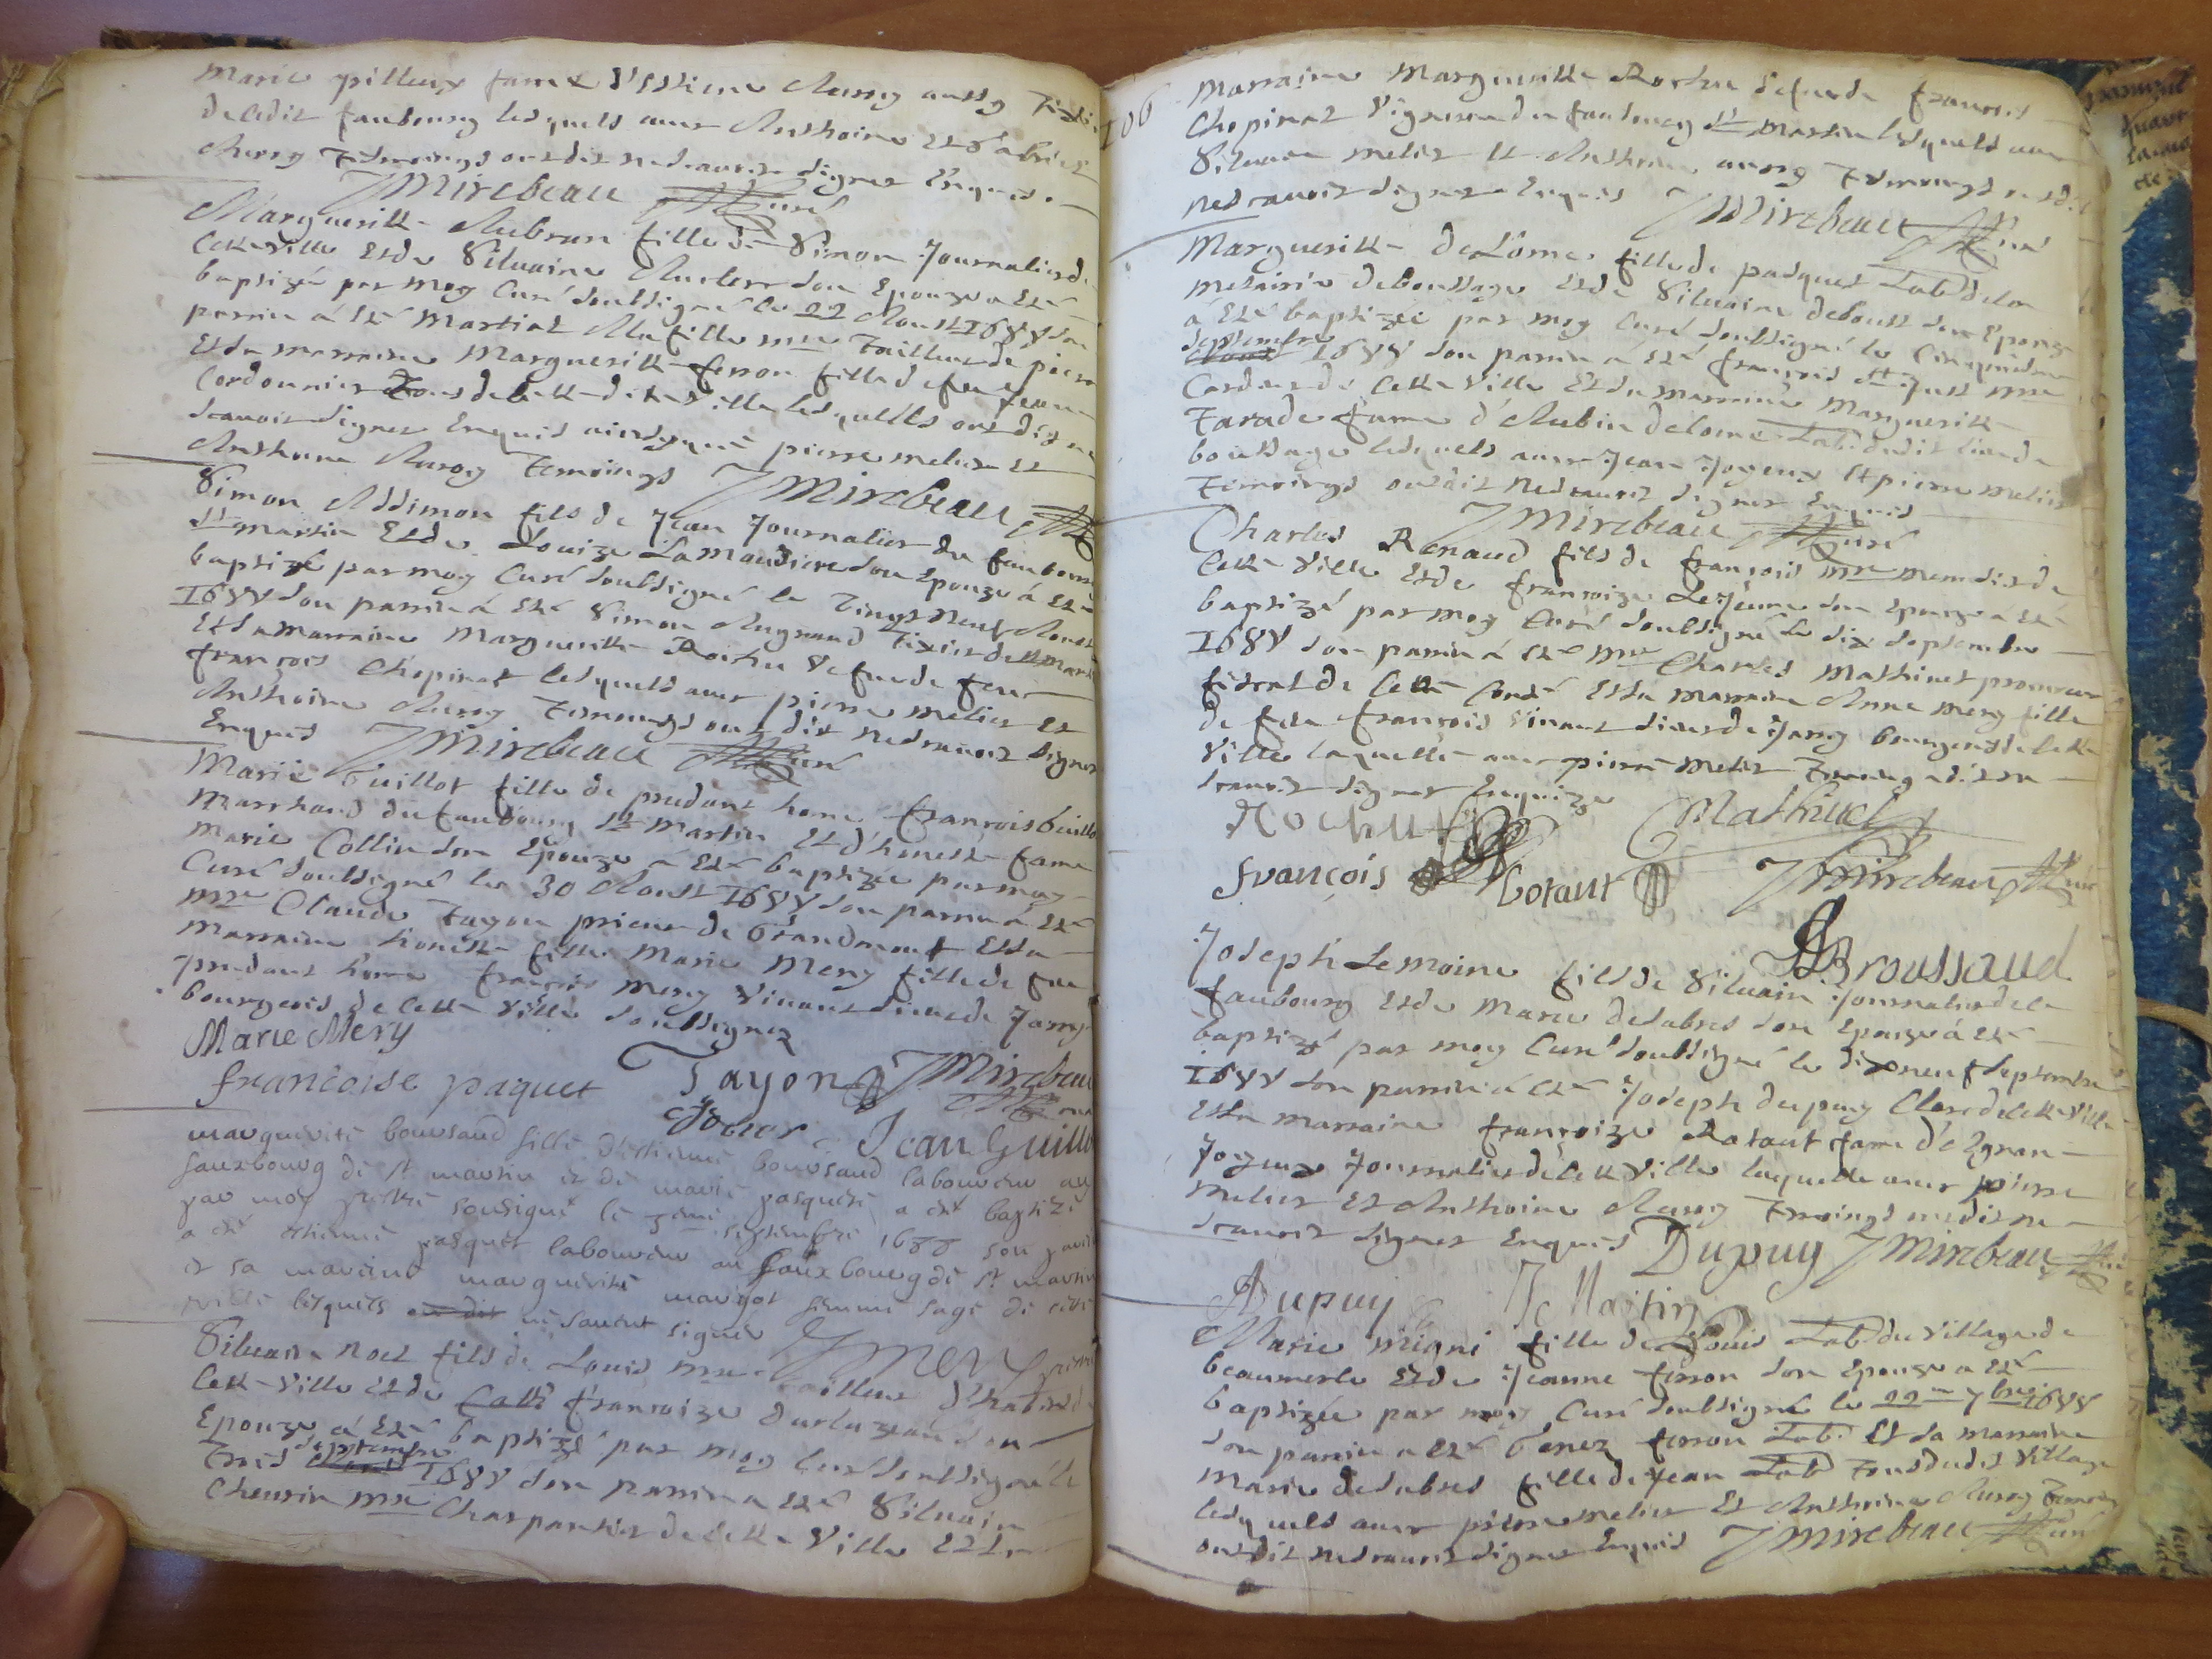 Marie pilleux fame d'Estiene Auroy aussy
dudit faubourg lesquels avec Anthoine et Gabriel
Auroy temoings ont dit ne scavoir signer Enquis
J Mirebeau Curé
Margueritte Aubrun fille de Simon Journalier de
Cette ville Et de Silvaine Auclerc son Epouze a Esté
baptizée par moy Curé soubsigné le 22 Aoust 1688 son
parin a esté Martial Mafille mre Tailleur de pierre
Et sa marraine Marguerite ferron fille de feu Jean
Cordonnier tous de cette ditte ville lesquels ont dit ne
scavoir signer Enquis ainsy que pierre melier et
Anthoine Auroy Temoings J Mirebeau
Simon Assimon fils de Jean Journalier du faubourg
St Martin Et de Louize Lamoudiere son Epouze a Esté
baptizé par moy Curé soubsigné le vingt neuf Aoust
1688 son parin a Esté Simon Augrand Tixier de St Martin
Et sa marraine Marguerite Rochu vefve de feu
françois Chopinat lesquels avec pierre melier et
Anthoine Auroy Temoings ont dit ne scavoir signer
Enquis J Mirebeau Curé
Marie Guillot fille de prudant home françois Guillot
Marchand du faubourg St Martin Et d'honeste fame
Marie Collin son Epouze a Esté baptizée par moy
Curé soubsigné le 30 Aoust 1688 son parin a Esté
mre Claude Tayon prieur de Grandmont Et sa
marraine honeste fille Marie Mery fille de feu
prudant home françois Mery vivant sieur de Jarry
bourgeois de cette ville soubsignez
Marie Mery
francoise paquet Tayon J Mirebeau
Jean Guillot
marguerite boursaud fille d'estienne boursaud laboureur au
fauxbourg de st martin et de marie pasquete a esté baptizé
par moy prestre sousigné le 7eme septembre 1688 son parin
a esté estienne pasquet laboureur au fauxbourg de st martin
et sa maraine marguerite margot femme sage de cette
ville lesquels ont dit ne savent signer
Silvain Noel fils de Louis mre Tailleur d'habits de
Cette ville Et de Cath françoize son
Epouze a Esté baptizé par moy Curé soubsigné le
Trois septembre 1688 son parin a Esté Silvain
Chenrin mre Charpantier de cette ville Et sa
106
Marraine Marguerite Rochu vefve de françois
Chopinat Vigneron du faubourg St Martin lesquels avec
Silvain melier et Anthoine auroy Temoings ont dit
ne scavoir signer Enquis J Mirebeau Curé
Marguerite deLome fille de pasquet Lab de la
metairie de boussage Et de Silvaine deboust son Epouze
a Esté baptizée par moy Curé soubsigné le Cinquiesme
septembre 1688 son parin a Esté françois St Just mre
Cardeur de Cette ville Et sa marraine Marguerite
Tarade fame d'Aubin delome Lab. dudit lieu de
boussage lesquels avec Jean Joyeux et pierre melier
Temoings ont dit ne scavoir signer Enquis
J Mirebeau Curé
Charles Renaud fils de françois mre menusier de
Cette ville Et de françoize LeJeune son Epouze a Esté
baptizé par moy Curé soubsigné le dix septembre
1688 son parin a Esté mre Charles Mathinet procureur
fiscal de Cette Conté Et sa marraine Anne Mery fille
de feu françois vivant sieur de Jarry bourgeois de cette
ville laquelle avec pierre melier Temoing a dit ne
scavoir signer Enquize
Mathinet
françois Cotant J Mirebeau Curé
Broussaud
Joseph Lemoine fils de Silvain Journalier de ce
faubourg Et de Marie desabres son Epouze a Esté
baptizé par moy Curé soubsigné le dixneuf septembre
1688 son parin a Esté Joseph dupuy Clerc de cette ville
Et sa marraine françoize Rataut fame d'Egnan
Joyeux Journalier de cette ville laquelle avec pierre
melier Et Anthoine Auroy Temoings ont dit ne
scavoir signer Enquis Dupuy J Mirebeau Curé
Dupuy J Martin
Marie Migni fille de Louis Lab du village de
beaumerle Et de Jeanne ferron son Epouze a Esté
baptizée par moy Curé soubsigné le 22me 7bre 1688
son parin a Esté Genez ferron Lab. Et sa marraine
Marie desabres fille de Jean Lab tous dudit village
lesquels avec pierre melier Et Anthoine Auroy Temoins
ont dit ne scavoir signer Enquis J Mirebeau Curé